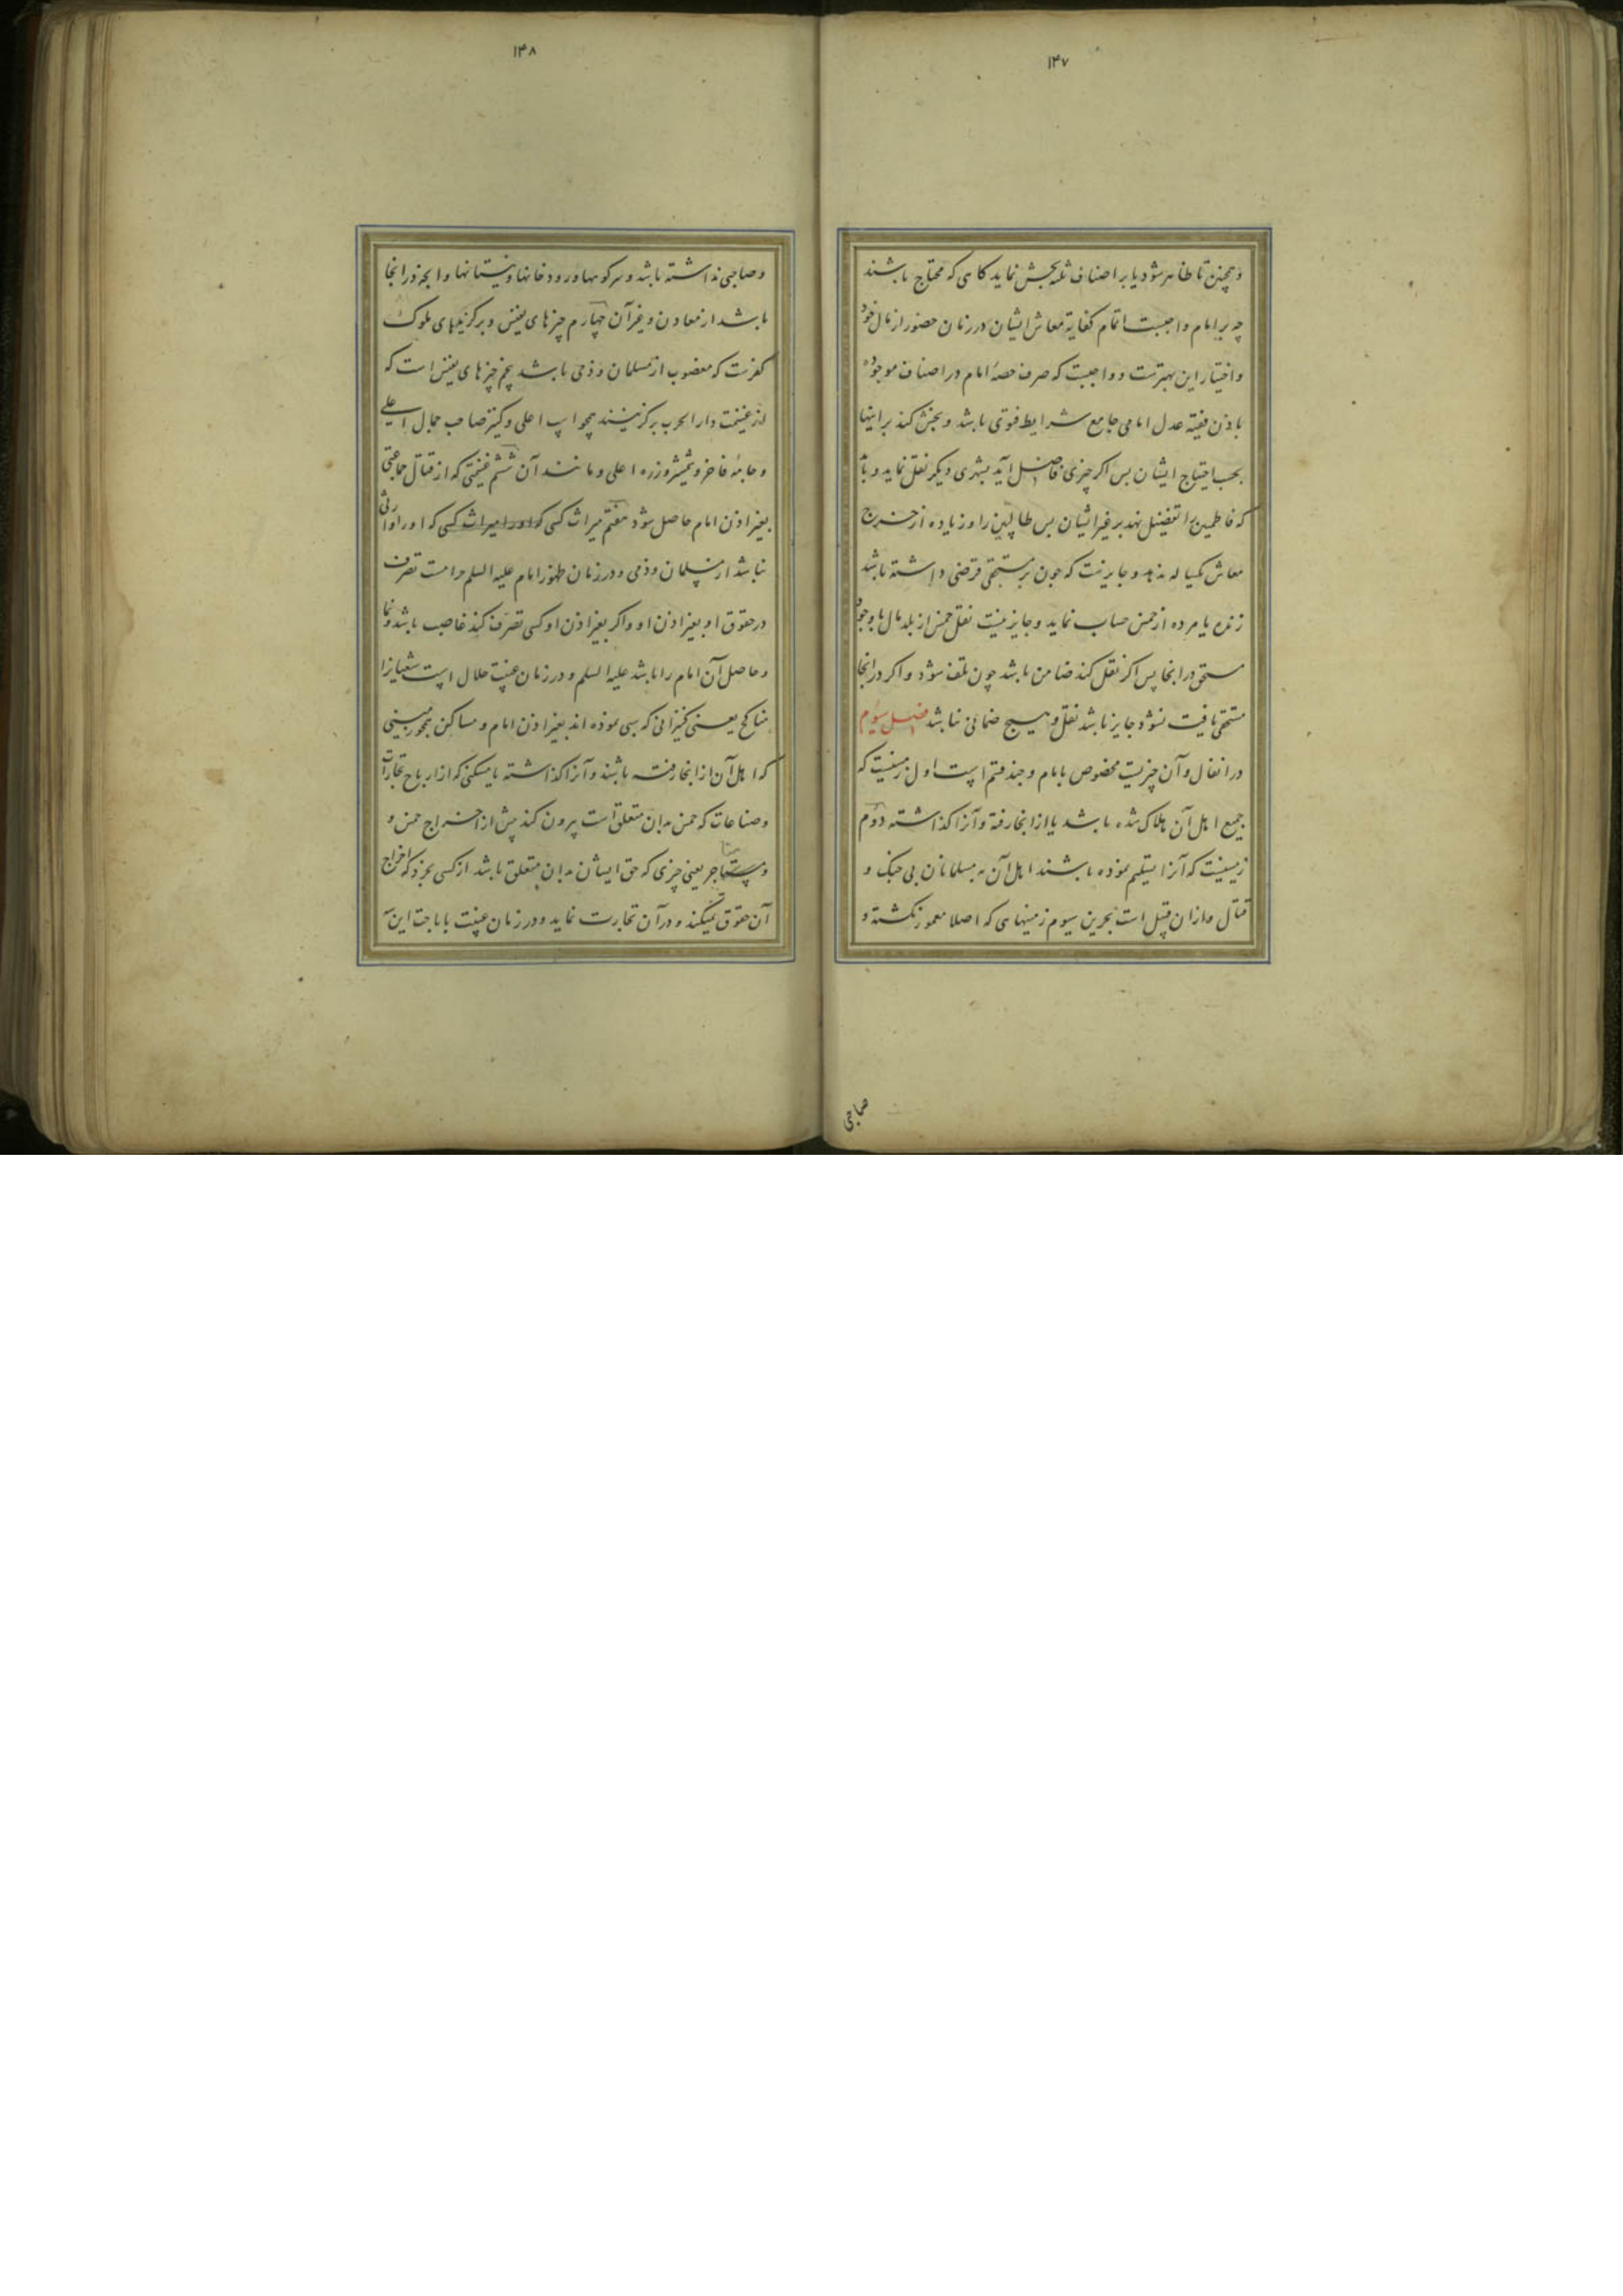 ۱۴۷
و همچنین تا ظاهر شود یا بر اصناف ثلثه بخش نماید کاهی که محتاج باشند
چه بر امام واجبست اتمام کفایة معاش ایشان در زمان حضور از مال خود
و اختیار این بهترست و واجبست که صرف حصهٔ امام در اصناف موجوده
باذن فقیه عدل امامی جامع شرایط فتوی باشد و بخش کند بر اینها
بحسب احتیاج ایشان بس اکر چیزی فاضل آید بشهری دیکر نقل نماید و باید
که فاطمیین را تفضیل نهد بر غیر ایشان بس طالبین را و زیاده از خرج
معاش یکساله ندهد و جایزنست که چون بر مستحقی قرضی داشته باشد
زنده یا مرده از خمس حساب نماید و جایز نیست نقل خمس از بلد مال با وجود
مستحق در انجا پس اکر نقل کند ضامن باشد چون تلف شود و اکر در انجا
مستحقی یافت نشود جایز باشد نقل و هیچ ضمانی نباشد فصل سیوم
در انفال و آن چیزیست مخصوص بامام و چند قسم است اول زمینیست که
جمیع اهل آن هلاک شده باشد یا از انجا رفته و آنرا کذاشته دوّم
زمینیست که آنرا تسلیم نموده باشند اهل آن به مسلمانان بی جنک و
قتال و ازان قبیل است بحرین سیوم زمینهای که اصلا معمور نکشته و
صاحبی
۱۴۸
و صاحبی نداشته باشد و سر کوهها و رودخانها و نیستانها و انچه در انجا
باشد از معادن و غیر آن چهارم چیزهای نفیس و برکزیدهای ملوک
کفرست که مغصوب از مسلمان و ذمی باشد پنجم چیزهای نفیس است که
از غنیمت دار الحرب برکزینند همچو اسپ اعلی و کنیز صاحب جمال اعلی
و جامهٔ فاخر و شمشیر و زره اعلی و مانند آن ششم غنیمتی که از قتال جماعتی
بغیر اذن امام حاصل شود هفتم میراث کسی که او را میراث کسی که او را وارثی
نباشد از مسلمان و ذمی و در زمان ظهور امام علیه السلم حرامست تصرف
در حقوق او بغیر اذن او و اکر بغیر اذن او کسی تصرف کند غاصب باشد و نما
و حاصل آن امام را باشد علیه السلم و در زمان غیبت حلال است شیعیانرا
مناکح یعنی کنیزانی که سبی نموده اند بغیر اذن امام و مساکن همچو زمینی
که اهل آن از انجا رفته باشند و آنرا کذاشته یا مسکنی که از ارباح تجارات
و صناعات که خمس بدان متعلق است بیرون کند پیش از اخراج خمس و
و متاجر یعنی چیزی که حق ایشان بدان متعلق باشد از کسی بخرد که اخراج
آن حقوق نمیکند و در آن تجارت نماید و در زمان غیبت باباحت این